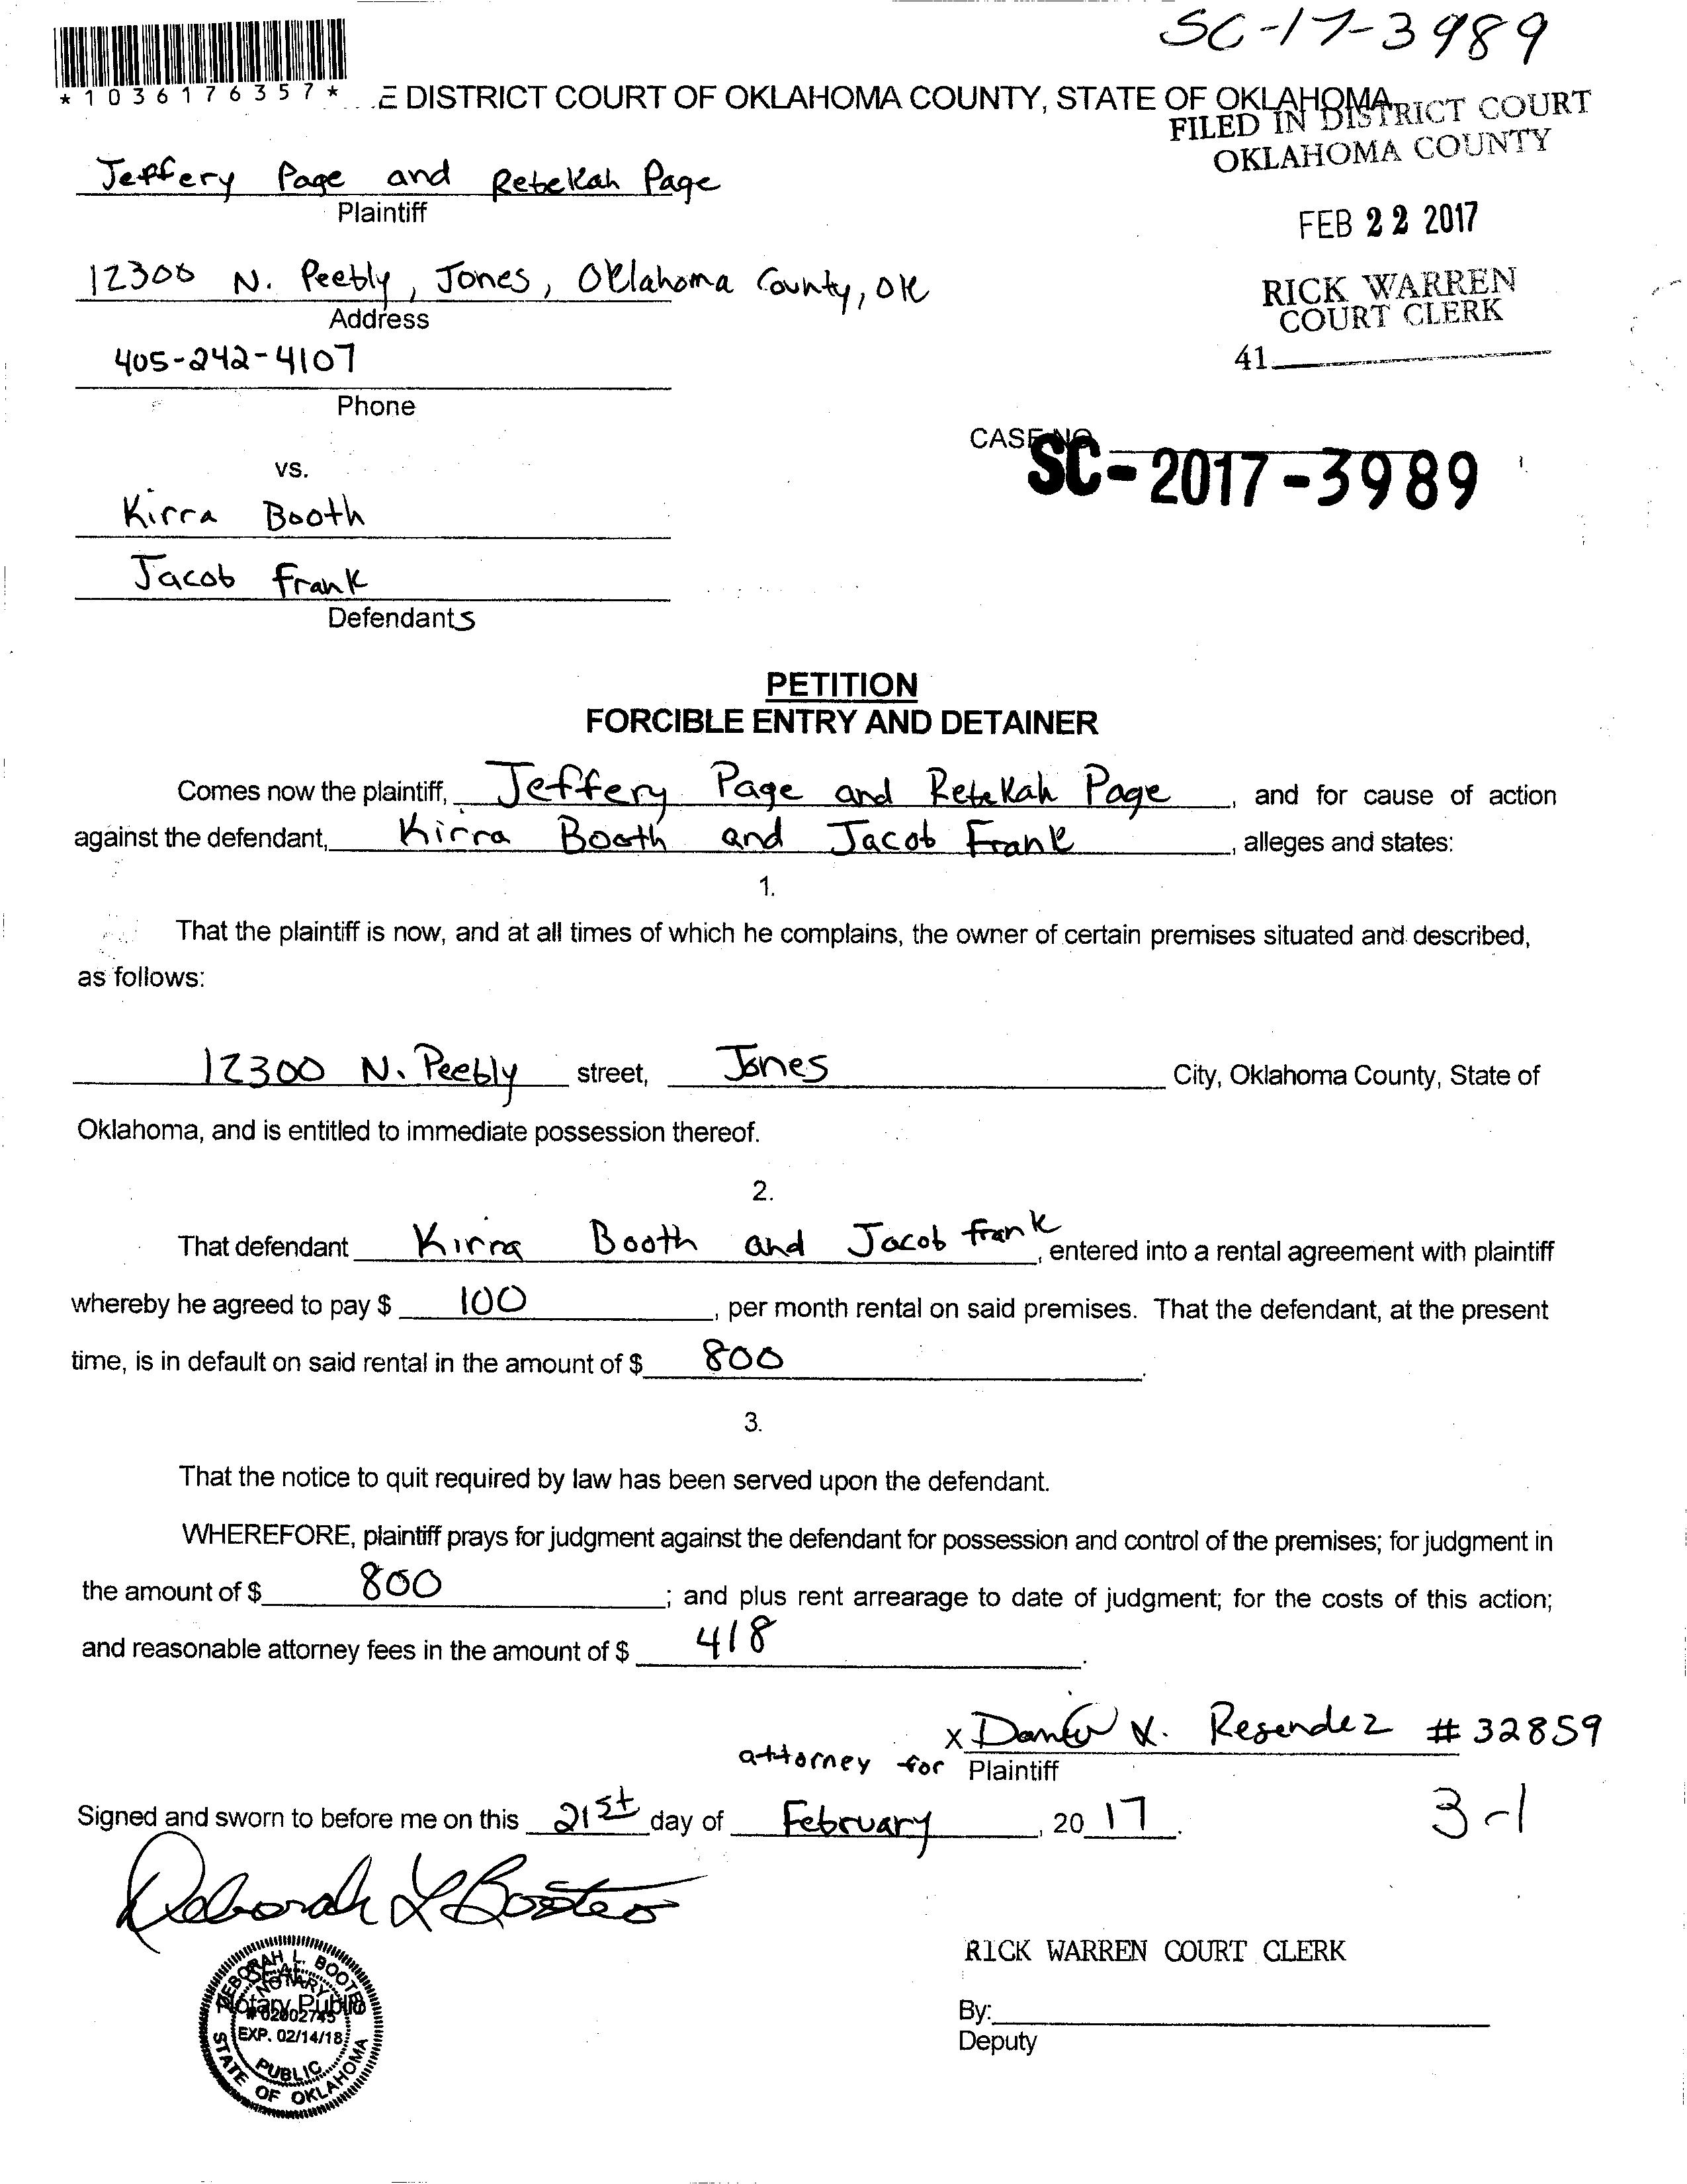 SC-17-3989
*1036176357*
E DISTRICT COURT OF OKLAHOMA COUNTY, STATE OF OKLAHOMA
FILED IN DISTRICT COURT
OKLAHOMA COUNTY
Jeffery Page and Rebekah Page
Plaintiff
FEB 22 2017
12300 N. Peebly, Jones, Oklahoma County, OK
Address
RICK WARREN
COURT CLERK
405-242-4107
41
Phone
CASE NO
SC-2017-3989
vs.
Kirra Booth
Jacob Frank
Defendants
PETITION
FORCIBLE ENTRY AND DETAINER
Comes now the plaintiff, Jeffery Page and Rebekah Page, and for cause of action
against the defendant, Kirra Booth and Jacob Frank, alleges and states:
1.
That the plaintiff is now, and at all times of which he complains, the owner of certain premises situated and described,
as follows:
12300 N. Peebly street, Jones City, Oklahoma County, State of
Oklahoma, and is entitled to immediate possession thereof.
2.
That defendant Kirra Booth and Jacob Frank, entered into a rental agreement with plaintiff
whereby he agreed to pay $ 100, per month rental on said premises. That the defendant, at the present
time, is in default on said rental in the amount of $ 800.
3.
That the notice to quit required by law has been served upon the defendant.
WHEREFORE, plaintiff prays for judgment against the defendant for possession and control of the premises; for judgment in
the amount of $ 800; and plus rent arrearage to date of judgment; for the costs of this action;
and reasonable attorney fees in the amount of $ 418.
x X. Resendez # 32859
attorney for Plaintiff
Signed and sworn to before me on this 21st day of February, 2017.
3-1
Deborah L Booten
DEBORAH L. BOOTE
SEAL
NOTARY
Notary Public
# 02002745
EXP. 02/14/18
PUBLIC
STATE OF OKLAHOMA
RICK WARREN COURT CLERK
By:
Deputy